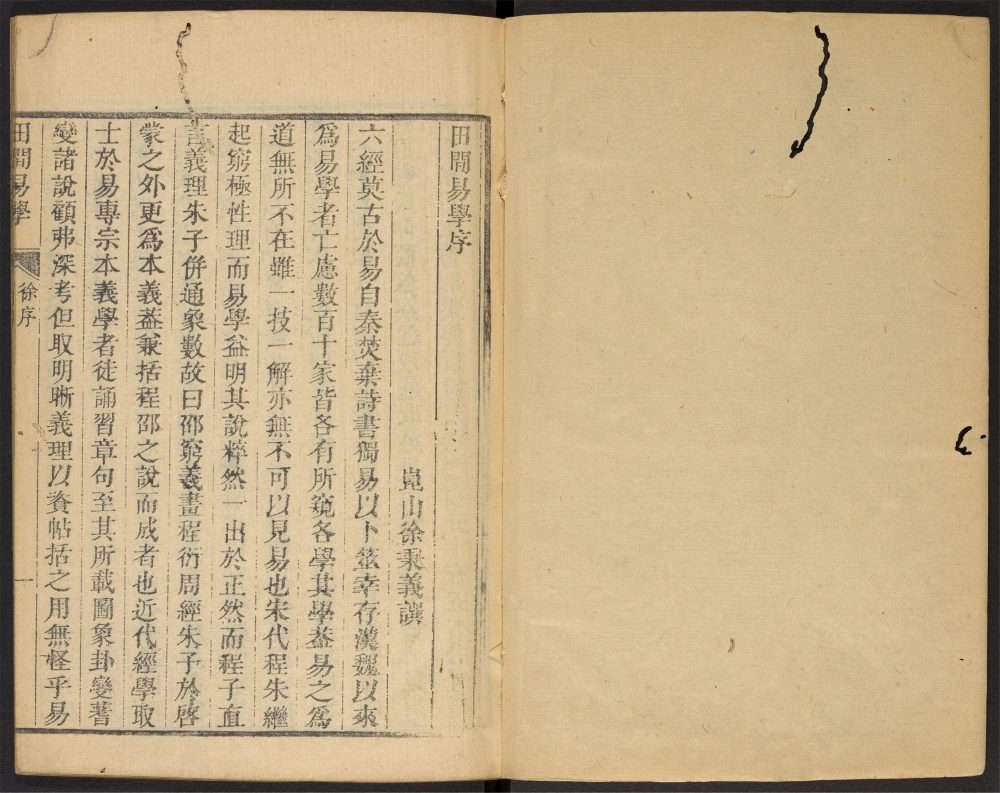 田間易學序
崑山徐秉義譔
六經莫古於易自秦焚棄詩書獨易以卜筮幸存漢魏以來
爲易學者亡慮數百十家皆各有所窺各學其學葢易之爲
道無所不在雖一技一解亦無不可以見易也宋代程朱繼
起窮極性理而易學益明其說粹然一出於正然而程子直
言義理朱子併通象數故曰邵窮羲畫程衍周經朱子於啓
蒙之外更爲本義葢兼括程邵之說而成者也近代經學取
士於易專宗本義學者徒誦習章句至其所載圖象卦變蓍
變諸說顧弗深考但取明晰義理以資帖括之用無怪乎易
田間易學
徐序
一